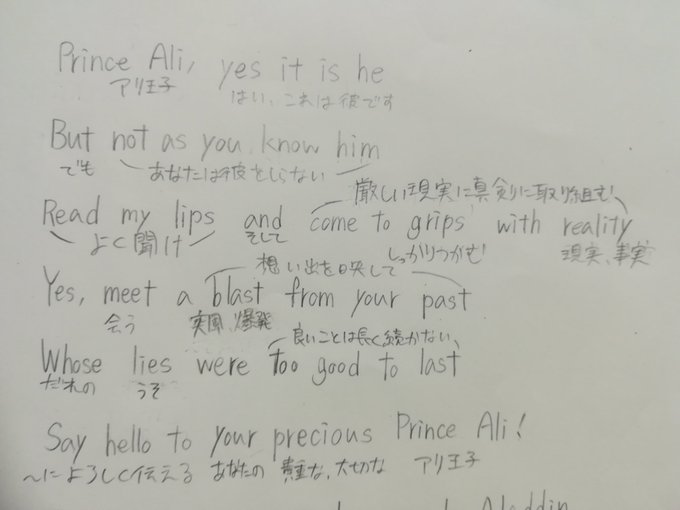 Prince Ali, yes it is he
アリ王子 はい、これは彼です
But not as you know him
でも あなたは彼をしらない
厳しい現実に真剣に取り組む
Read my lips and come to grips with reality
よく聞け そして しっかりつかむ 現実、事実
想い出を映して
Yes, meet a blast from your past
会う 突風、爆発
良いことは長く続かない、
Whose lies were too good to last
だれの うそ
Say hello to your precious Prince Ali!
～によろしく伝える あなたの 貴重な、大切な アリ王子
Aladdin